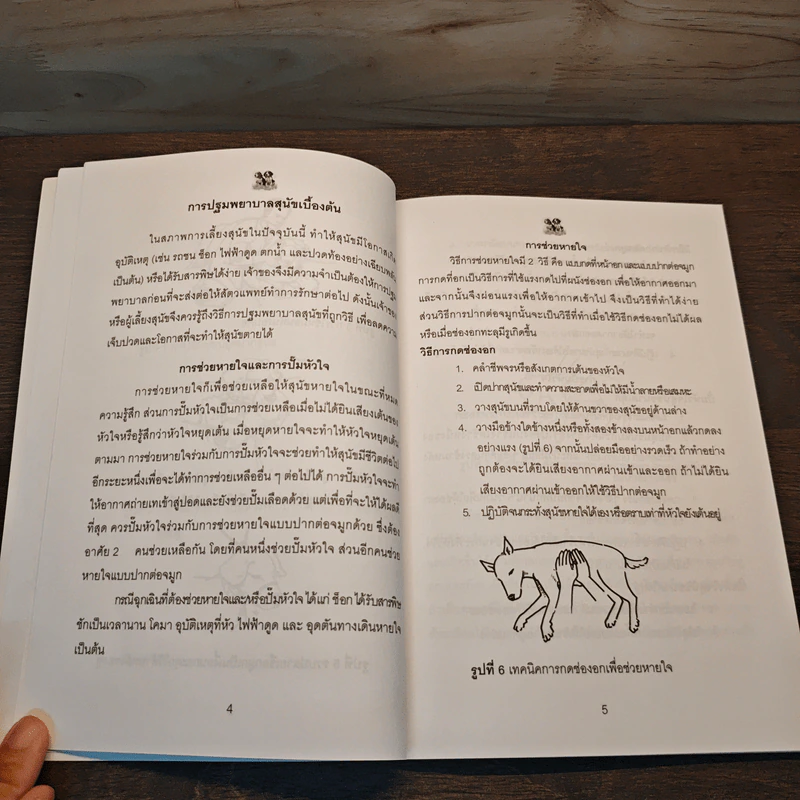 การปฐมพยาบาลสุนัขเบื้องต้น
ในสภาพการเลี้ยงสุนัขในปัจจุบันนี้ ทำให้สุนัขมีโอกาสเกิด
อุบัติเหตุ (เช่น รถชน ช็อก ไฟฟ้าดูด ตกน้ำ และปวดท้องอย่างเฉียบพลัน
เป็นต้น) หรือได้รับสารพิษได้ง่าย เจ้าของจึงมีความจำเป็นต้องให้การปฐม
พยาบาลก่อนที่จะส่งต่อให้สัตวแพทย์ทำการรักษาต่อไป ดังนั้นเจ้าของ
หรือผู้เลี้ยงสุนัขจึงควรรู้ถึงวิธีการปฐมพยาบาลสุนัขที่ถูกวิธี เพื่อลดความ
เจ็บปวดและโอกาสที่จะทำให้สุนัขตายได้
การช่วยหายใจและการปั๊มหัวใจ
การช่วยหายใจก็เพื่อช่วยเหลือให้สุนัขหายใจในขณะที่หมด
ความรู้สึก ส่วนการปั๊มหัวใจเป็นการช่วยเหลือเมื่อไม่ได้ยินเสียงเต้นของ
หัวใจหรือรู้สึกว่าหัวใจหยุดเต้น เมื่อหยุดหายใจจะทำให้หัวใจหยุดเต้น
ตามมา การช่วยหายใจร่วมกับการปั๊มหัวใจจะช่วยทำให้สุนัขมีชีวิตต่อไป
อีกระยะหนึ่งเพื่อจะได้ทำการช่วยเหลืออื่น ๆ ต่อไปได้ การปั๊มหัวใจจะทำ
ให้อากาศถ่ายเทเข้าสู่ปอดและยังช่วยปั๊มเลือดด้วย แต่เพื่อที่จะให้ได้ผลดี
ที่สุด ควรปั๊มหัวใจร่วมกับการช่วยหายใจแบบปากต่อจมูกด้วย ซึ่งต้อง
อาศัย 2 คนช่วยเหลือกัน โดยที่คนหนึ่งช่วยปั๊มหัวใจ ส่วนอีกคนช่วย
หายใจแบบปากต่อจมูก
กรณีฉุกเฉินที่ต้องช่วยหายใจและ/หรือปั๊มหัวใจ ได้แก่ ช็อก ได้รับสารพิษ
ชักเป็นเวลานาน โคมา อุบัติเหตุที่หัว ไฟฟ้าดูด และ อุดตันทางเดินหายใจ
เป็นต้น
4
การช่วยหายใจ
วิธีการช่วยหายใจมี 2 วิธี คือ แบบกดที่หน้าอก และแบบปากต่อจมูก
การกดที่อกเป็นวิธีการที่ใช้แรงกดไปที่ผนังช่องอก เพื่อให้อากาศออกมา
และจากนั้นจึงผ่อนแรงเพื่อให้อากาศเข้าไป จึงเป็นวิธีที่ทำได้ง่าย
ส่วนวิธีการปากต่อจมูกนั้นจะเป็นวิธีที่ทำเมื่อใช้วิธีกดช่องอกไม่ได้ผล
หรือเมื่อช่องอกทะลุมีรูเกิดขึ้น
วิธีการกดช่องอก
1. คลำชีพจรหรือสังเกตการเต้นของหัวใจ
2. เปิดปากสุนัขและทำความสะอาดเพื่อไม่ให้มีน้ำลายหรือเสมหะ
3. วางสุนัขบนที่ราบโดยให้ด้านขวาของสุนัขอยู่ด้านล่าง
4. วางมือข้างใดข้างหนึ่งหรือทั้งสองข้างลงบนหน้าอกแล้วกดลง
อย่างแรง (รูปที่ 6) จากนั้นปล่อยมืออย่างรวดเร็ว ถ้าทำอย่าง
ถูกต้องจะได้ยินเสียงอากาศผ่านเข้าและออก ถ้าไม่ได้ยิน
เสียงอากาศผ่านเข้าออกให้ใช้วิธีปากต่อจมูก
5. ปฏิบัติจนกระทั่งสุนัขหายใจได้เอง หรือตราบเท่าที่หัวใจยังเต้นอยู่
รูปที่ 6 เทคนิคการกดช่องอกเพื่อช่วยหายใจ
5